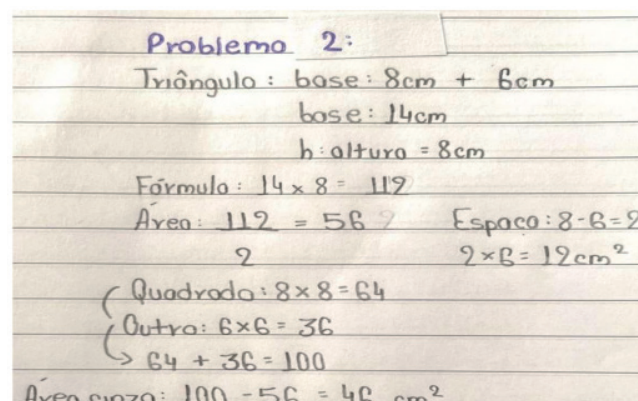 Problema 2:
Triângulo: base: 8cm + 6cm
base: 14cm
h: altura = 8cm
Fórmula: 14 x 8 = 112
Área: 112 = 56 Espaço: 8-6=2
2 2x6= 12cm²
Quadrado: 8x8=64
Outro: 6x6= 36
64 + 36 = 100
Área cinza: 100 - 56 = 46 cm²